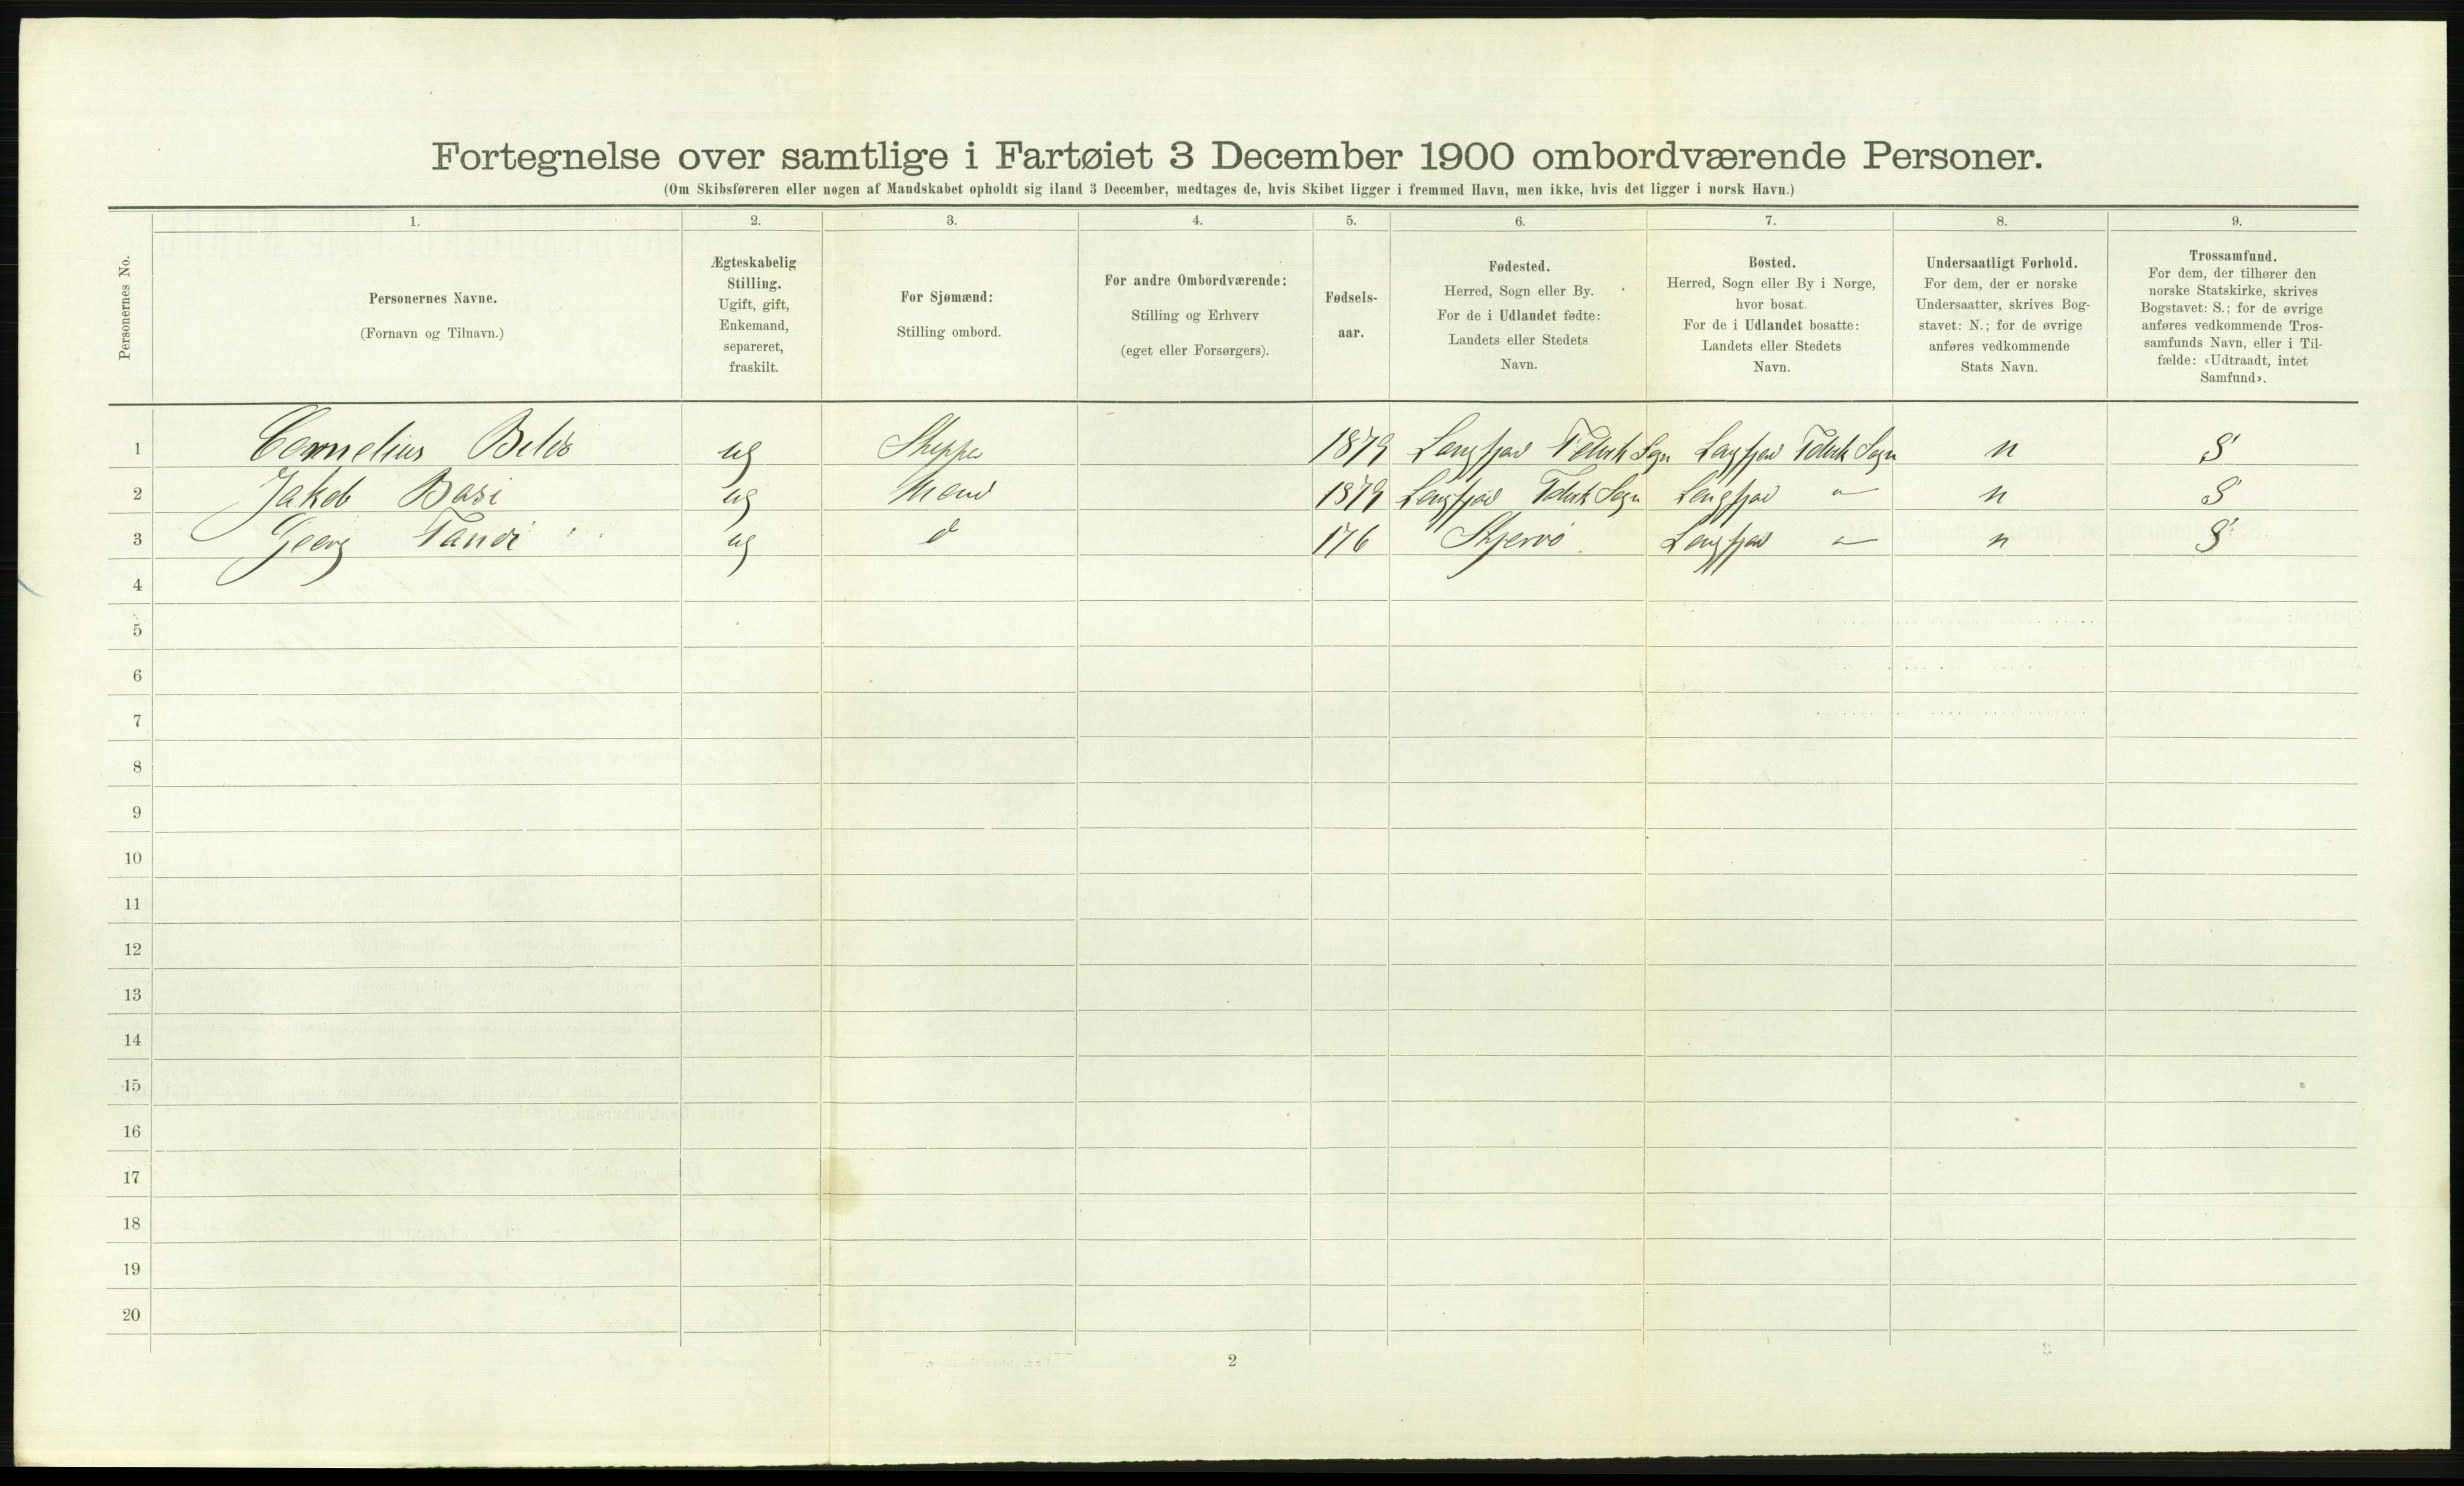 Fortegnelse over samtlige i Fartøiet 3 December 1900 ombordværende Personer.
(Om Skibsføreren eller nogen af Mandskabet opholdt sig iland 3 December, medtages de, hvis Skibet ligger i fremmed Havn, men ikke, hvis det ligger i norsk Havn.)
Personernes No.
1.
Personernes Navne.
(Fornavn og Tilnavn.)
2.
Ægteskabelig
Stilling.
Ugift, gift,
Enkemand,
separeret,
fraskilt.
3.
For Sjømænd:
Stilling ombord.
4.
For andre Ombordværende:
Stilling og Erhverv
(eget eller Forsørgers).
5.
Fødsels-
aar.
6.
Fødested.
Herred, Sogn eller By.
For de i Udlandet fødte:
Landets eller Stedets
Navn.
7.
Bosted.
Herred, Sogn eller By i Norge,
hvor bosat.
For de i Udlandet bosatte:
Landets eller Stedets
Navn.
8.
Undersaatligt Forhold.
For dem, der er norske
Undersaatter, skrives Bog-
stavet: N.; for de øvrige
anføres vedkommende
Stats Navn.
9.
Trossamfund.
For dem, der tilhører den
norske Statskirke, skrives
Bogstavet: S.; for de øvrige
anføres vedkommende Tros-
samfunds Navn, eller i Til-
fælde: «Udtraadt, intet
Samfund».
1 Cornelius ug 1879 Sogn Sogn n S
2 Jakob Basi ug Mand 1879 Sogn " n S
3 Georg Tandi ug d 176 Skjervø " n S
4
5
6
7
8
9
10
11
12
13
14
15
16
17
18
19
20
2